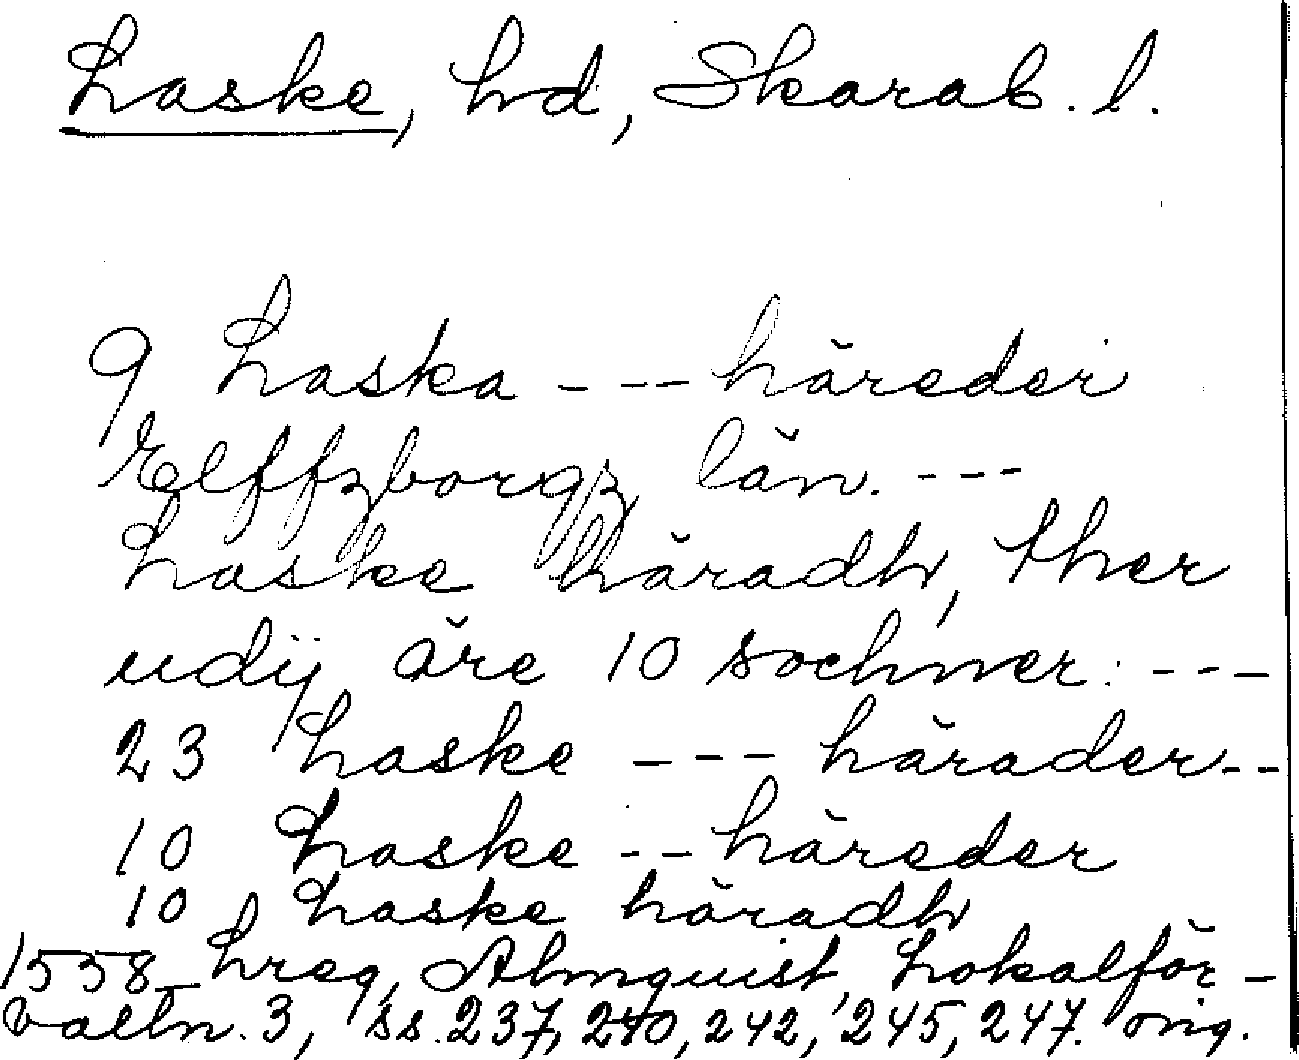 Laske, hd, Skarab. l.
9 Laska --- häreder
Elffzborgz län. ---
Laske häradh, ther
udij äre 10 sochner: ---
23 Laske --- härader--
10 Laske --- häreder
10 Laske häradh
1558 hreg, Almquist, Lokalför-
valtn. 3, ss. 237, 240, 242, 245, 247. orig.